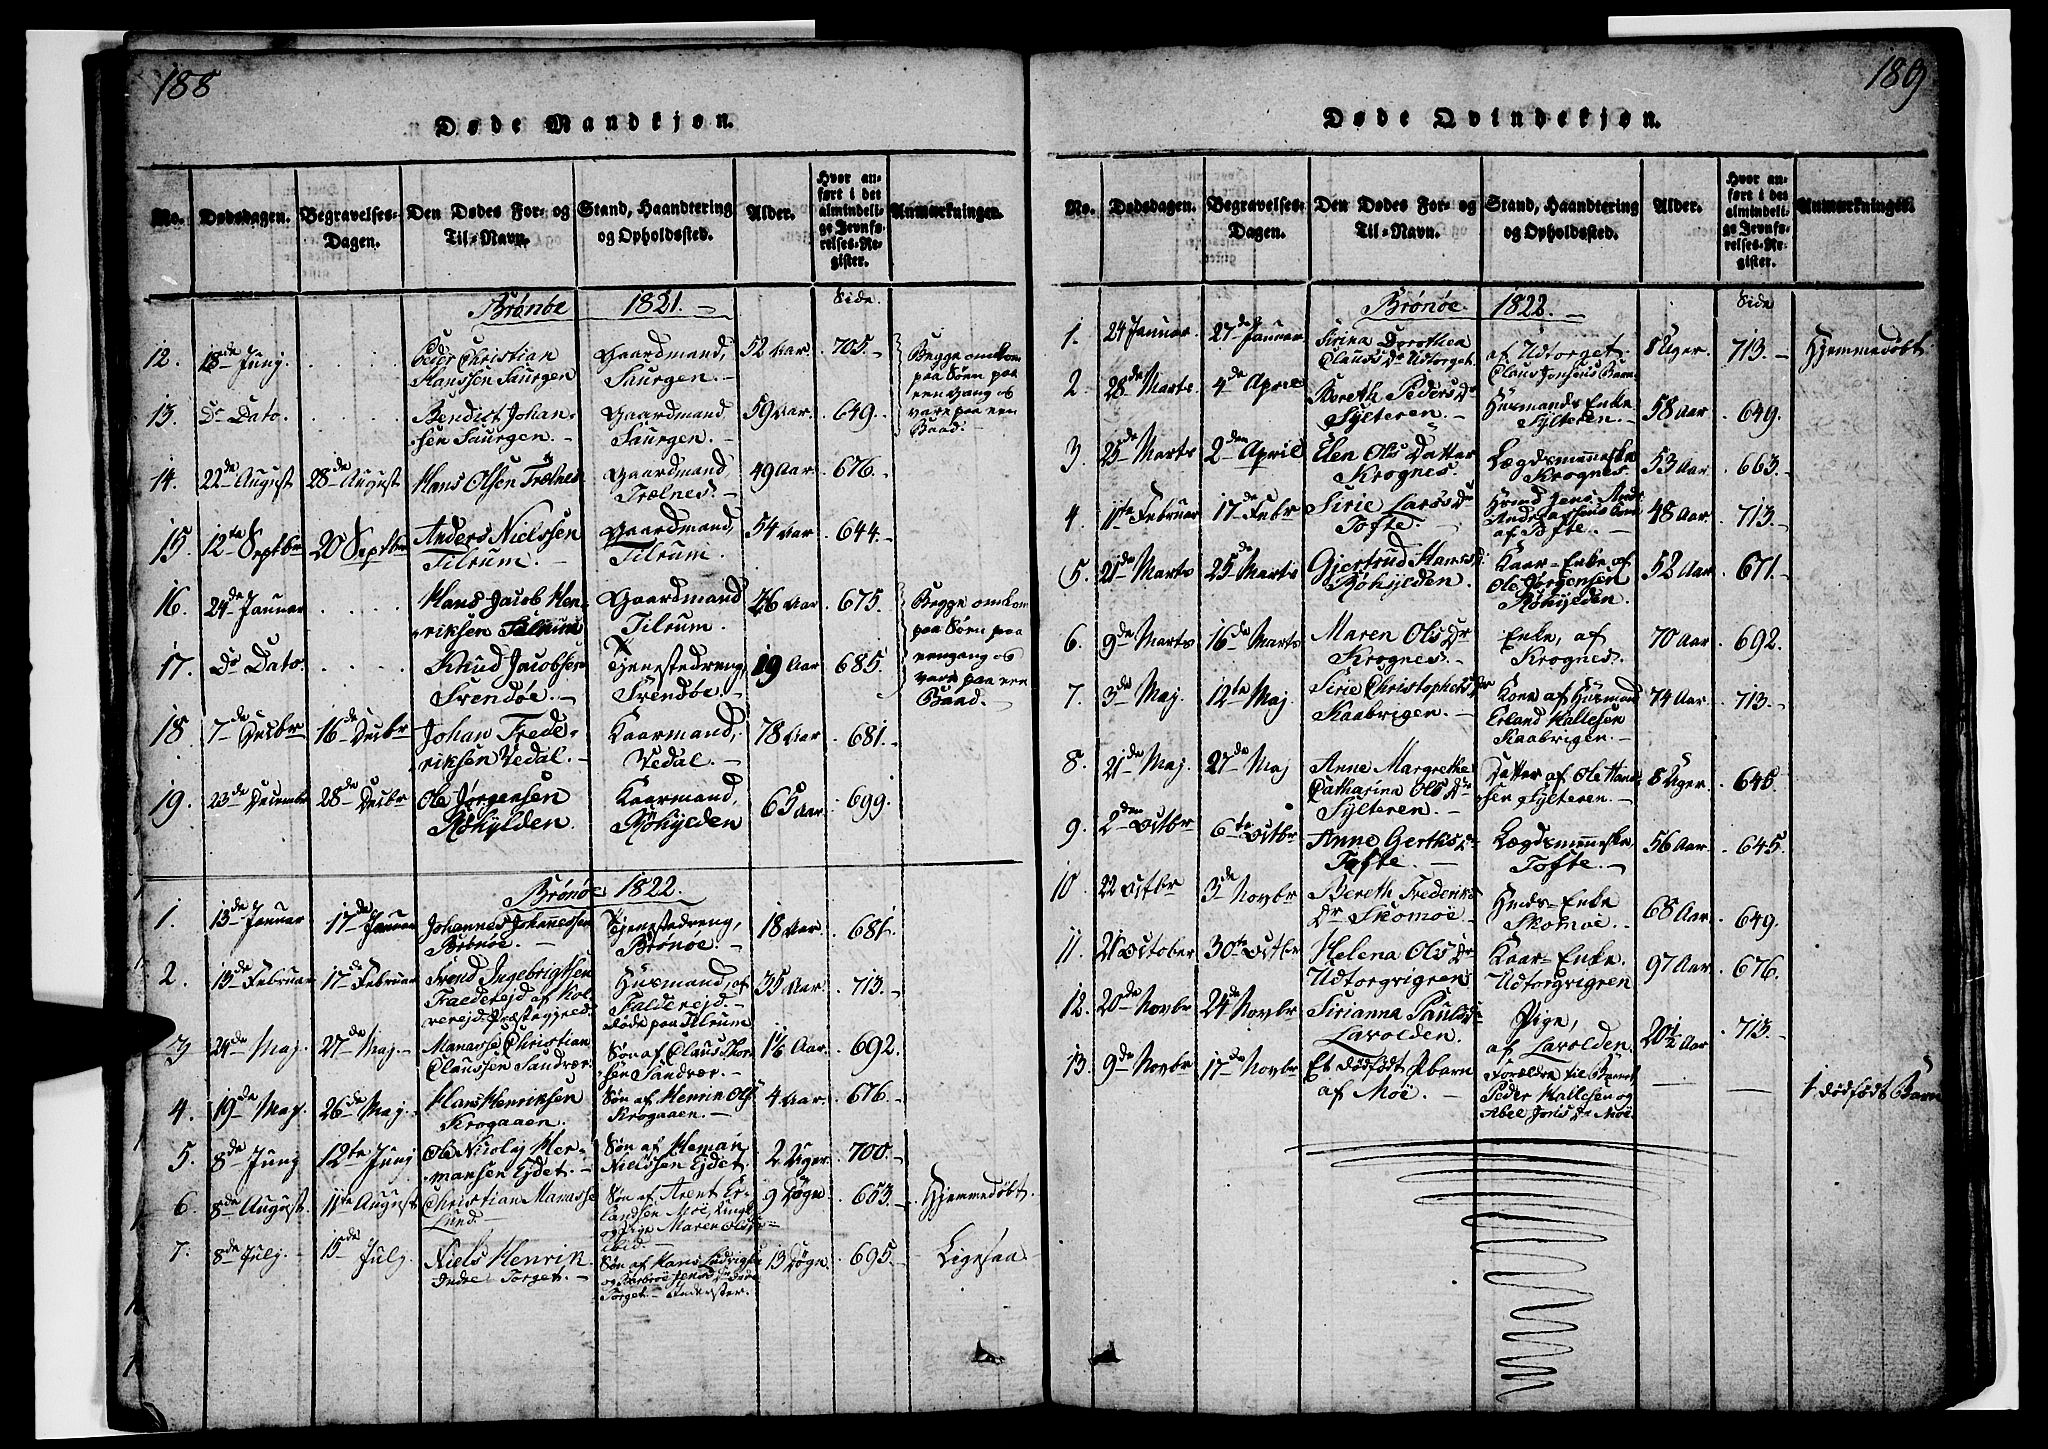 188
Døde Mandkjøn.
No. Dødsdagen. Begravelses-Dagen. Den Dødes For- og Til-Navn. Stand, Haandtering og Opholdssted. Alder. Hvor anført i det almindelige Jevnførelses-Register. Anmærkninger.
Brönöe 1821. Side.
12. 18de Junj Peder Christian Hanssen Saurgen Gaardmand, Saurgen. 52 Aar. 705. Begge omkom paa Søen paa een Gang og vare paa een Baad.
13. Do Dato. Bendict Johansen Saurgen. Gaardmand Saurgen. 59 Aar. 649.
14. 22de August 28de August Hans Olsen Trælnes Gaardmand Trælnes. 49 Aar. 676.
15. 12te Septbr 20 Septbr Anders Nielssen Tilrum. Gaardmand, Tilrum. 54 Aar 644.
16. 24de Januar Hans Jacob Henriksen Tilrum Gaardmand Tilrum. 26 Aar. 675. Begge omkom paa Søen paa eengang og vare paa een Baad.
17. Do Dato Knud Jacobsen Trendöe. Tjenestedreng, Trendöe 19 Aar 685.
18. 7de Decbr 16de Decbr Johan Frederiksen Vedal. Kaarmand, Vedal. 78 Aar 681.
19. 23de Decembr 28de Decbr Ole Jörgensen Röhylden. Kaarmand, Röhylden 65 Aar. 699.
Brönöe 1822.
1. 13de Januar 17de Januar Johannes Johannessen Brönöe. Tjenestedreng, Brönöe. 18 Aar. 681.
2. 15de Februar 17de Februar Trond Ingebrigtsen Husmand, af Talderejd. 35 Aar. 713.
3 24de Maj 27de Maj. Manasse Christian Claussen Sandvær. Søn af Claus Sandvær. 1½ Aar. 692.
4. 19de Maj. 26de Maj. Hans Henriksen Krogaaen. Søn af Henrik Ols. Krogaaen. 4 Aar. 676.
5. 8de Junj 12te Junj Ole Nicolaj Hermansen Ejdet. Søn af Heman Nielssen Ejdet. 2 Uger. 700.
6. 8de August. 11te August Christian Manasse Lund. Søn af Arent Erlandsen Moe, Pige Maren Olsdr ibid. 9 Døgn 653. Hjemmedøbt.
7. 8de Julj. 15de Julj Niels Henrik Indre Torget. Søn af Hans Ludvigsen Indre Torget. 13 Døgn 695. Ligesaa
189
Døde Qvindekjøn.
No. Dødsdagen. Begravelses-Dagen. Den Dødes For- og Til-Navn. Stand, Haandtering og Opholdssted. Alder. Hvor anført i det almindelige Jevnførelses-Register. Anmærkninger.
Brönöe. 1822. Side
1. 24 Januar. 27de Januar Sirina Dorothea Clausdr Udtorget. af Udtorget. Claus Jonsens Barn 8 Uger. 713. Hjemmedøbt
2. 28de Marts 4de April Bereth Pedersdr Sylteren. Husmands Enke Sylteren. 58 Aar 649.
3. 25de Marts 2den April Elen Ols Datter Krognes. Lægdsmenneske Krognes 53 Aar 663.
4. 11te Februar 17de Febr Sirie Larsdr Tofte. af Tofte. 48 Aar. 713.
5. 21de Marts 25de Marts Gjertrud Hansdr. Röhylden. Kaar-Enke af Ole Jörgensen Röhylden. 52 Aar 671.
6. 9de Marts 16de Marts Maren Olsdr Krognes. Enke, af Krognes. 70 Aar 692.
7. 3de Maj. 12te Maj. Sirie Christophersdr Kaabrigen. Kone af Husmand Erland Kallesen Kaabrigen. 74 Aar 713.
8. 21de Maj. 27de Maj Anne Margrethe Catharina Olsdr Sylteren. Datter af Ole Hansen Sylteren. 8 Uger. 645.
9. 2den Octbr 6te Octbr Anne Gerthsdr Tofte. Lægdsmenneske, Tofte. 56 Aar. 645.
10. 22 Octbr 3de Novbr Bereth Frederiksdr Skomoe. Enke Skomoe. 68 Aar. 649.
11. 21 October 30te Octbr Helena Olsdr Udtorgvigren Kaar-Enke. Udtorgvigren 97 Aar. 676.
12. 20de Novbr 24de Novbr Sirianna Paulsdr Lavolden. Pige, af Lavolden. 20½ Aar 713.
13. 9de Novbr 17de Novbr Et dødfødt Pbarn af Moe. Forældre til Barnet Peder Kallesen og Abel Jonsdr Moe. 1 dødfødt Barn